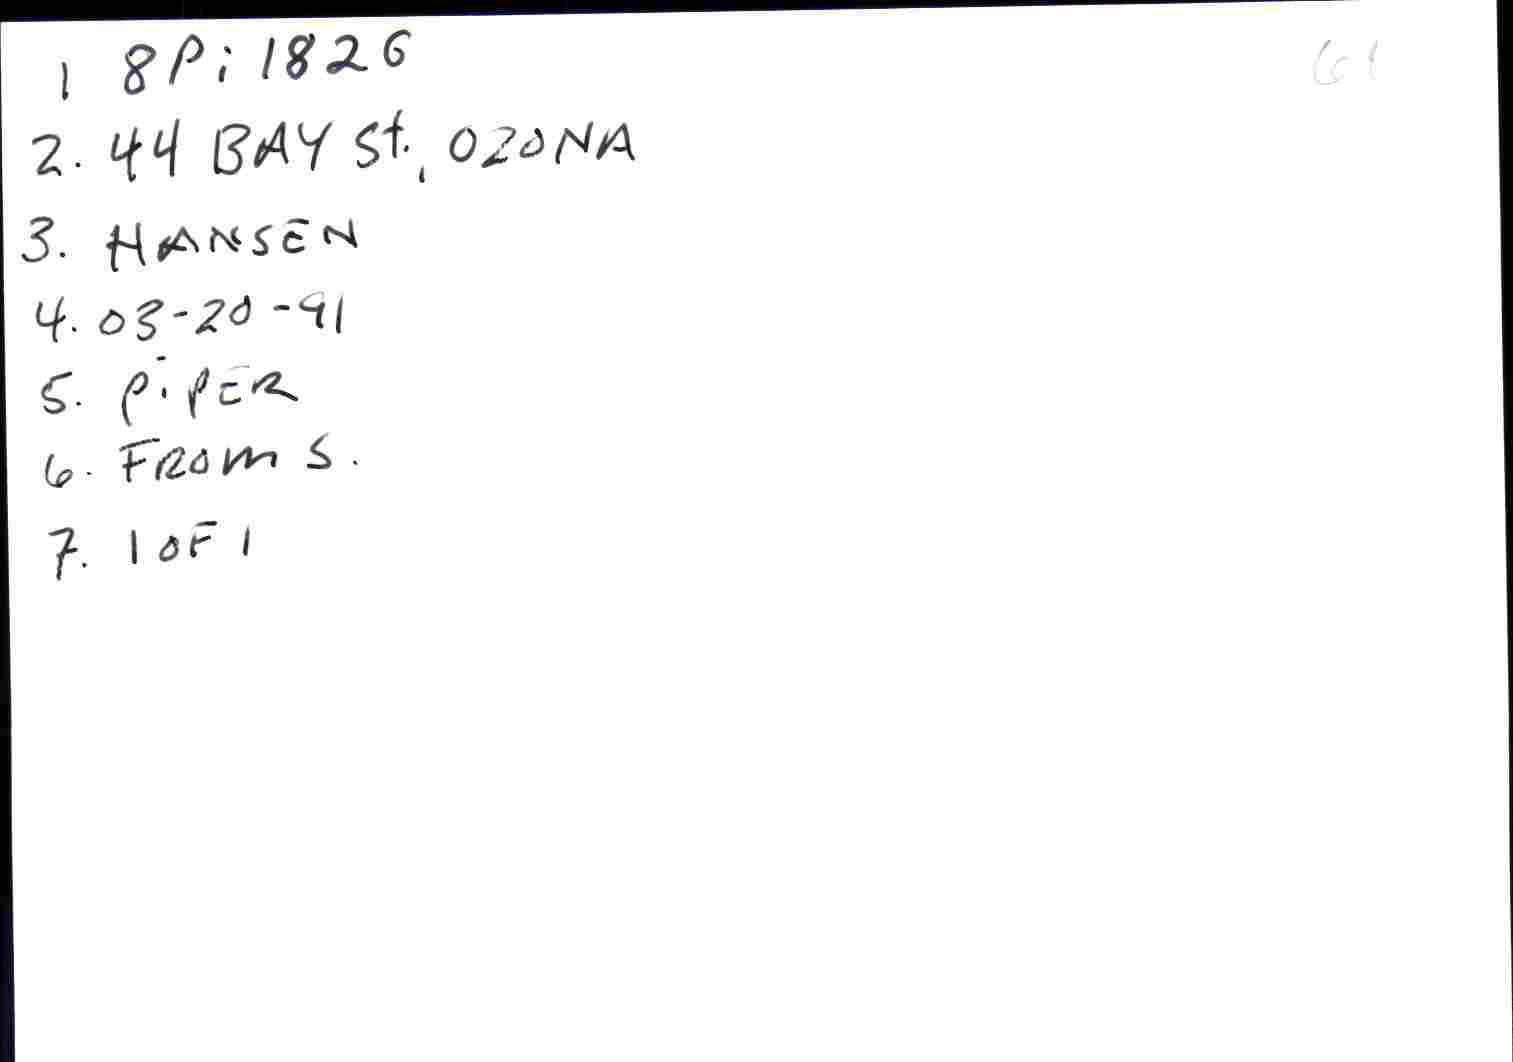 1 8Pi1826
2. 44 BAY St., OZONA
3. HANSEN
4. 03-20-91
5. PiPER
6. FROM S.
7. 1 OF 1